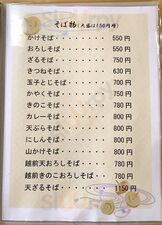 そば物(大盛は150円増)
かけそば・・・・・・・550円
おろしそば・・・・・・550円
ざるそば・・・・・・・600円
きつねそば・・・・・・600円
玉子とじそば・・・・・600円
かやくそば・・・・・・750円
きのこそば・・・・・・780円
カレーそば・・・・・・800円
天ぷらそば・・・・・・800円
にしんそば・・・・・・800円
山かけそば・・・・・・800円
越前天おろしそば・・・780円
越前きのこおろしそば・780円
天ざるそば・・・・・・1150円